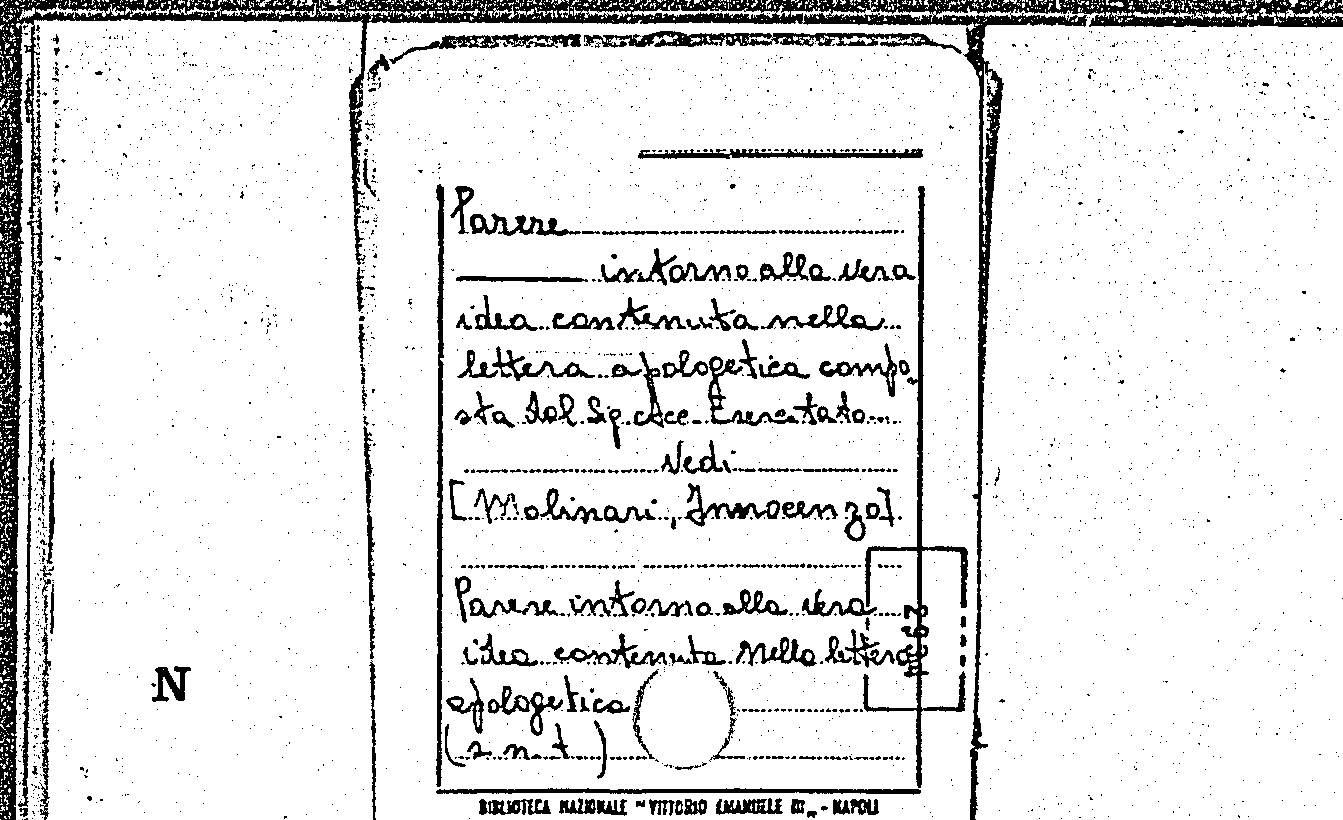 Parere
intorno alla vera
idea contenuta nella
lettera apologetica compo-
sta dal Sig. Acc. Esercitato
Vedi
[Molinari, Innocenzo]
Parere intorno alla vera
idea contenuta nella lettera
apologetica
(s. n. t.)
N
BIBLIOTECA NAZIONALE "VITTORIO EMANUELE III" - NAPOLI